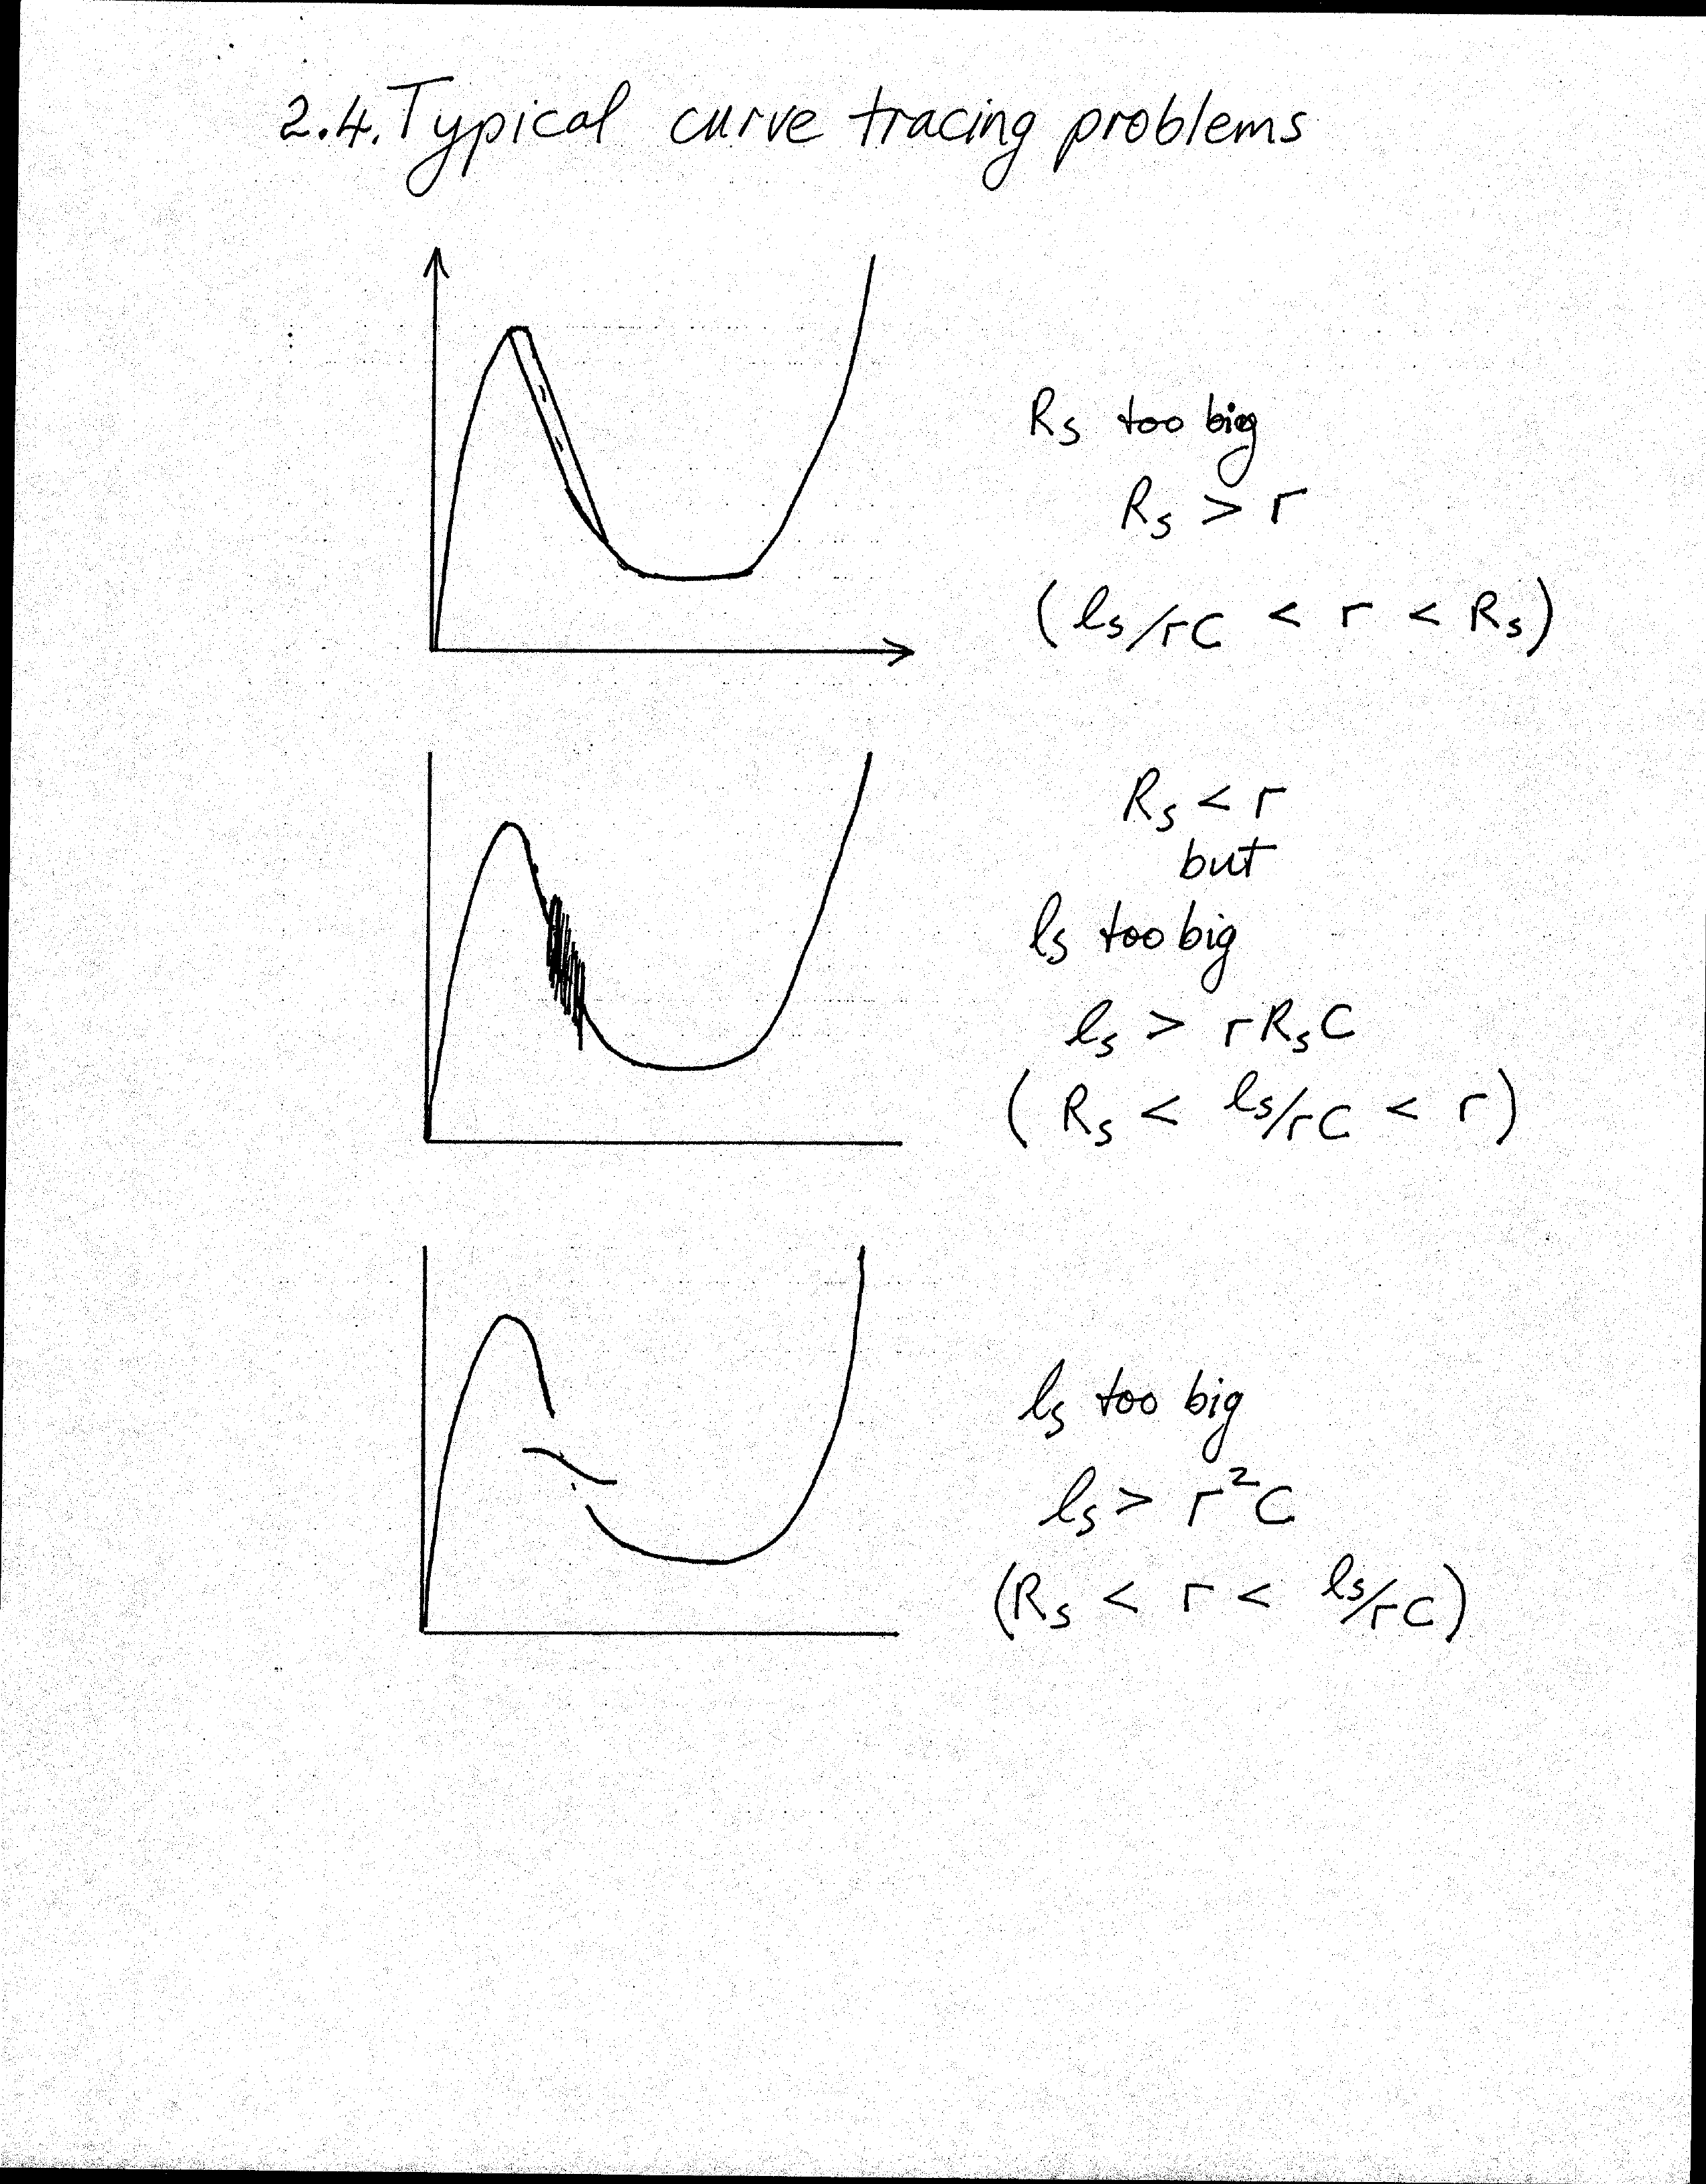 2.4. Typical curve tracing problems
Rs too big
Rs > r
(ls/rC < r < Rs)
Rs < r
but
ls too big
ls > rRsC
(Rs < ls/rC < r)
ls too big
ls > r²C
(Rs < r < ls/rC)